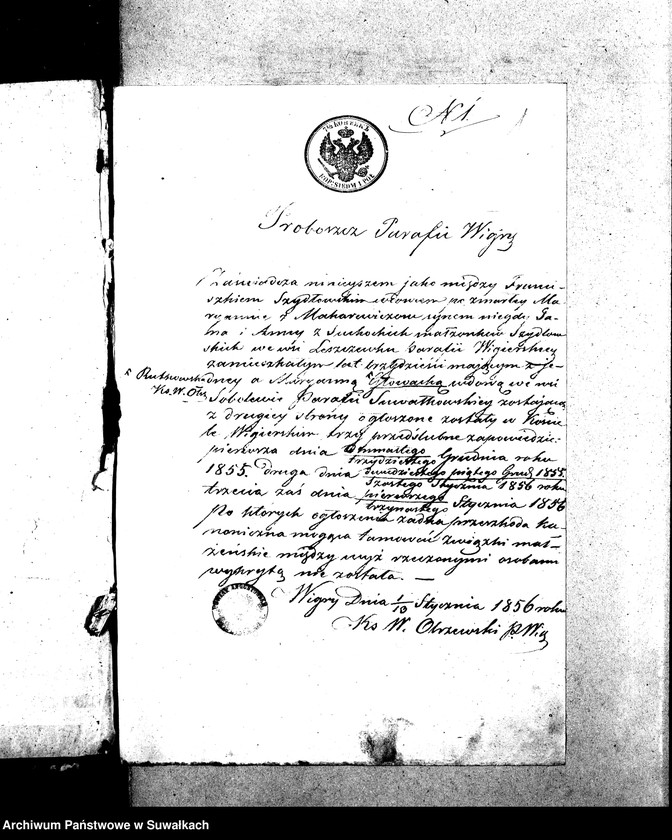 N 1
Proboszcz Parafii Wigry
Zaświadcza niniejszem jako między Franci-
szkiem Szydłowskim wdowcem po zmarłey Ma-
ryannie z Makarewiczow synem niegdy Ja-
na i Anny z Suchockich małżonków Szydłow
skich we wsi Leszczewku Parafii Wigierskiey
zamieszkałym lat trzydzieści mającym z je-
dney a Maryanną Głowacką wdową we wsi
× Rutkowską
Ks. W. Obrz.
Sobolewie Parafii Suwałkowskiey zostającą
z drugiey strony ogłoszone zostały w Koście
le Wigierskim trzy przedślubne zapowiedzie:
pierwsza dnia Ośmnastego
trzydziestego Grudnia roku
1855. druga dnia dwudziestego piątego Grud. 1855
Szóstego Stycznia 1856 roku
trzecia zaś dnia pierwszego
trzynastego Stycznia 1856
Po których ogłoszeniu żadna przeszkoda ka-
noniczna mogąca tamować związki mał-
żeńskie między wyż rzeczonymi osobami
wykrytą nie została. —
Wigry Dnia 1/13 Stycznia 1856 roku
Ks W. Obrzewski P. Wig
Archiwum Państwowe w Suwałkach